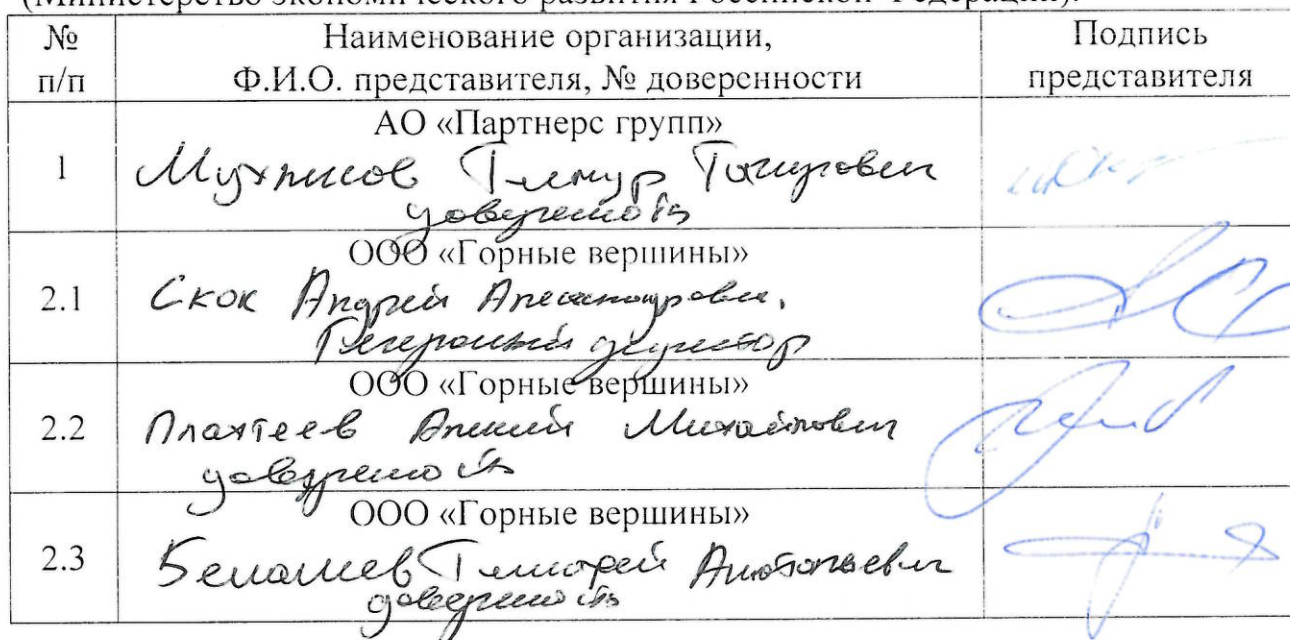 (Министерство экономического развития Российской Федерации).
№ п/п
Наименование организации,
Ф.И.О. представителя, № доверенности
Подпись
представителя
1
АО «Партнерс групп»
Тимур
доверенность
2.1
ООО «Горные вершины»
Скок Андрей Александрович,
Генеральный директор
2.2
ООО «Горные вершины»
Плахтеев Алексей Михайлович
доверенность
2.3
ООО «Горные вершины»
Дмитрий Анатольевич
доверенность